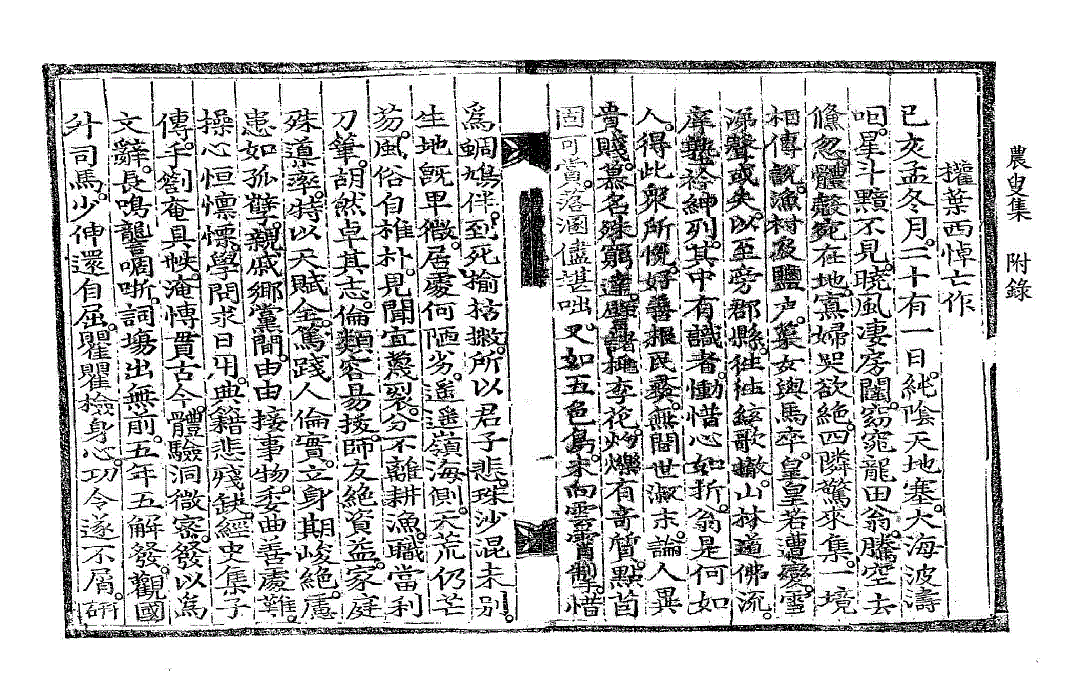 農叟集 附錄
權葉西悼亡作
己亥孟冬月。二十有一日純陰天地塞大海波濤
咽。星斗黯不見。曉風凄房闥。窈窕龍田翁。騰空去
儵忽體宛在地。寡婦哭欲絶。四隣驚來集。一境
相傳說。漁村及鹽户。菜女與馬卒。皇皇若遭變。雪
涕聲或失。以至旁郡縣。徃徃絃歌輟。山林道佛流。
庠塾衿紳列。其中有識者。慟惜心如折。翁是何如
人。得此衆所悅。好善根民彝。無間世淑末。論人異
貴賤。慕名殊窮達。譬諸桃李花。灼爍有奇質。點茵
固可賞。落溷儘堪咄。又如五色鳥。來向雲霄。惜
爲蜩鳩伴。到死搶枋撇。所以君子悲。珠沙混未别。
生地旣卑微。居處何陋劣。遥遥嶺海側。天荒仍芒
芴。風俗自椎朴。見聞宜蔑裂。分不離耕漁。職當利
刀筆。胡然卓其志。倫類容易拔。師友絶資益。家庭
殊導率。特以天賦全。篤踐人倫實。立身期峻絶。處
患如孤孽。親戚鄉黨間。由由接事物。委曲善處難。
操心恒懍慄。學問求日用。典籍悲殘缺。經史集子
傳。手劄奄具帙。淹博貫古今。體驗洞微密。發以爲
文辭。長鳴啁哳。詞塲出無前。五年五解發。觀國
外司馬。少伸還自屈。瞿瞿檢身心。功令遂不屑。研